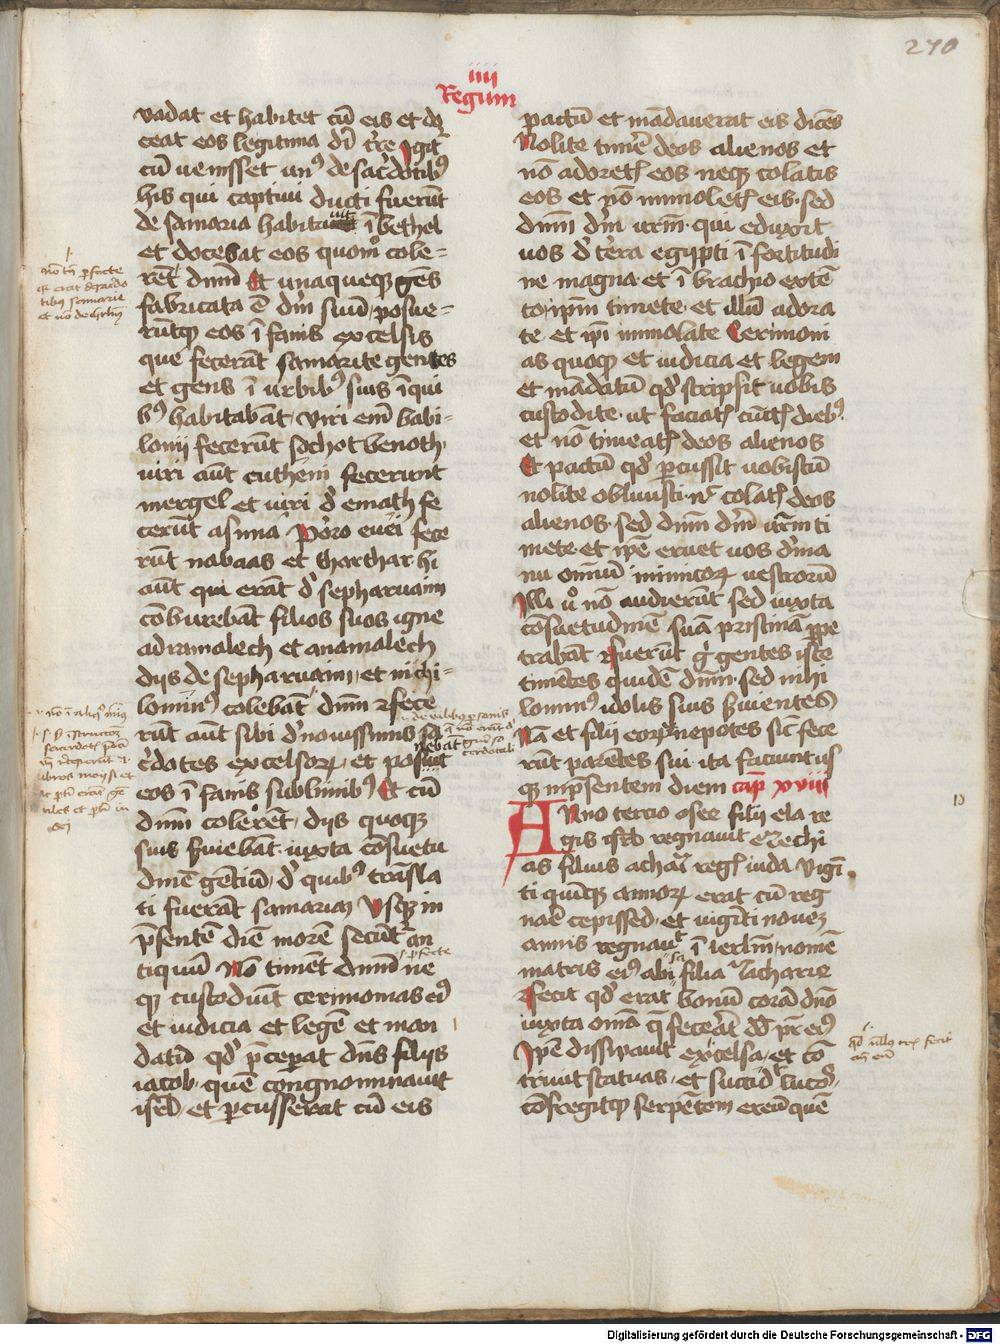 270
iiii
Regum
vadat et habitet cū eis et do
ceat eos legitima dī t̄re Igit̄
cū venisset un⁹ de sac̄dotib⁹
his qui captivi ducti fuerūt
de samaria habita ī bethel
et docebat eos quom̊ cole-
rēt dnm̄ Et unaqueqꝫ gēs
fabricata ē dm̄ suū posue-
rūtqꝫ eos ī fanis excelsis
que fecerāt samarite gentes
et gens ī urbib⁹ suis ī qui
b⁹ habitabāt viri em̄ babi-
lonii fecerūt sochot benoth
viri aūt cutheni fecerunt
mergel et viri d̄ emath fe
cerūt asima Porro euei fece
rūt nabaas et tharthar hi
aūt qui erāt d̄ sepharuaim
cōburebāt filios suos igne
adramalech et anamalech
diis de sepharuaim et nichi-
lomin⁹ colebāt dnm̄ Fece
rūt aūt sibi d̄ novissimis sa
c̄dotes excelsoꝝ et po
nebāt
eos ī fanis sublimib⁹ Et cū
dnm̄ colerēt diis quoqꝫ
suis s̄viebāt iuxta cōsuetu
dinē gētiū d̄ quib⁹ trāsla
ti fuerāt samariam Usqꝫ in
p̄sentē diē morē secūt̄ an
tiquū Nō timēt dnm̄ ne
qꝫ custodiūt cerimonias ei⁹
et iudicia et legē et man
datū qd̄ p̄cepat dn̄s filiis
iacob quē congnominavit
isrl̄ et percusserat cū eis
pactū et mādaverat eis dicēs
Nolite timē deos alienos et
nō adoretꝭ eos neqꝫ colatis
eos et nō immoletꝭ eis sed
dnm̄ dm̄ vrm̄ qui eduxit
vos d̄ t̄era egypti ī fortitudi
ne magna et ī brachio extē
to ip̄m timete et illū adora
te et ip̄i immolate Cerimoni
as quoqꝫ et iudicia et legem
et mādatū qd̄ scripsit vobis
custodite ut faciatꝭ cūctꝭ dieb⁹
et nō timeatꝭ deos alienos
Et pactū qd̄ percussit vobiscū
nolite oblivisci nec colatꝭ deos
alienos sed dnm̄ dm̄ vrm̄ ti
mete et ip̄e eruet vos d̄ ma
nu omniū inimicoꝝ vestrorū
Illi v̊ nō audierūt sed iuxta
cōsuetudinē suā pristinā ppe
trabāt Fuerūt g̊ gentes iste
timētes quidē dnm̄ sed nihi
lomin⁹ idolis suis s̄vientes
Nā et filii eorꝝ nepotes sic̄ fece
rūt parētes sui ita faciunt us
qꝫ in p̄sentem diem cap̄ xviii
Anno tercio osee filii ela re
gis isrl̄ regnavit ezechi
as filius achaz regꝭ iuda Vigī
ti quīqꝫ annoꝝ erat cū reg
nae cepisset et vigīti novem
annis regnavit ī ierlm̄ nomē
matris ei⁹ abi filia zacharie
Fecit qd̄ erat bonū corā dn̄o
iuxta om̄a q̄ fecerat dd̄ pr̄ ei⁹
Ip̄e dissipavit excelsa et cō
trivit statuas et succidit lucos
cōfregitqꝫ serpētem ereū quē
nō tn̄ perfecte
tibus samarie
s perfecte
qd̄ nullus rex fecit
Digitalisierung gefördert durch die Deutsche Forschungsgemeinschaft - DFG